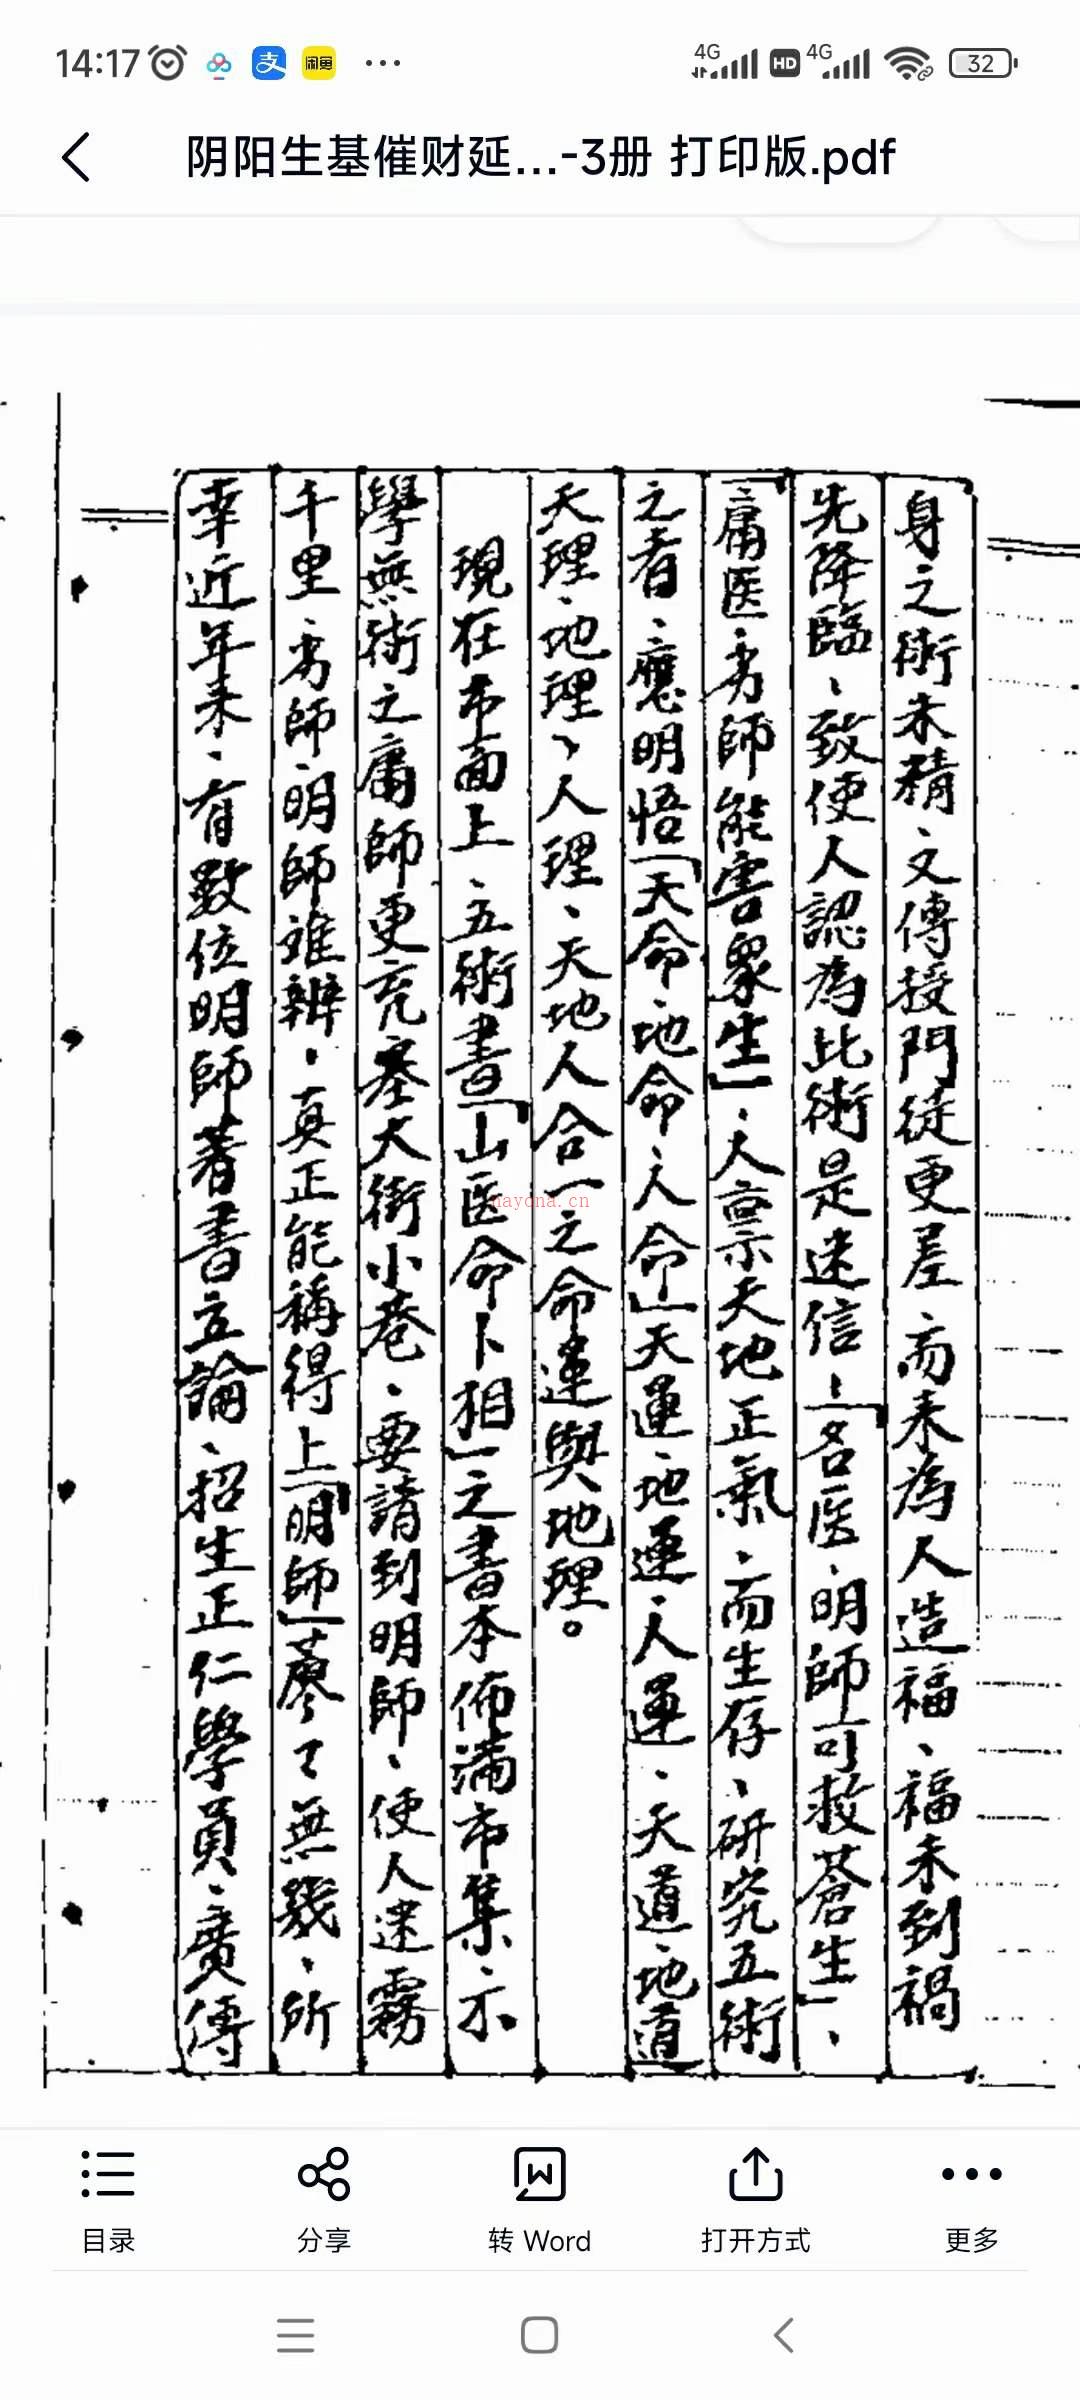 14:17
4G HD 4G 32
阴阳生基催财延...-3册 打印版.pdf
身之術未精、又傳授門徒更差、而未為人造福、福未到禍
先降臨、致使人認為此術是迷信、「名医、明師可救蒼生」、
「庸医、劣師能害眾生」、人禀天地正氣、而生存、研究五術
之者、應明悟「天命、地命、人命」天運、地運、人運、天道、地道
天理、地理、人理、天地人合一之命運與地理。
現在市面上、五術書「山医命卜相」之書本佈滿市集、不
學無術之庸師更充塞大街小巷、要請到明師、使人迷霧
千里、劣師、明師难辨、真正能稱得上「明師」廖了無幾、所
幸近年来、有數位明師著書立論、招生正仁學員、廣傳
nayona.cn
目录
分享
转 Word
打开方式
更多